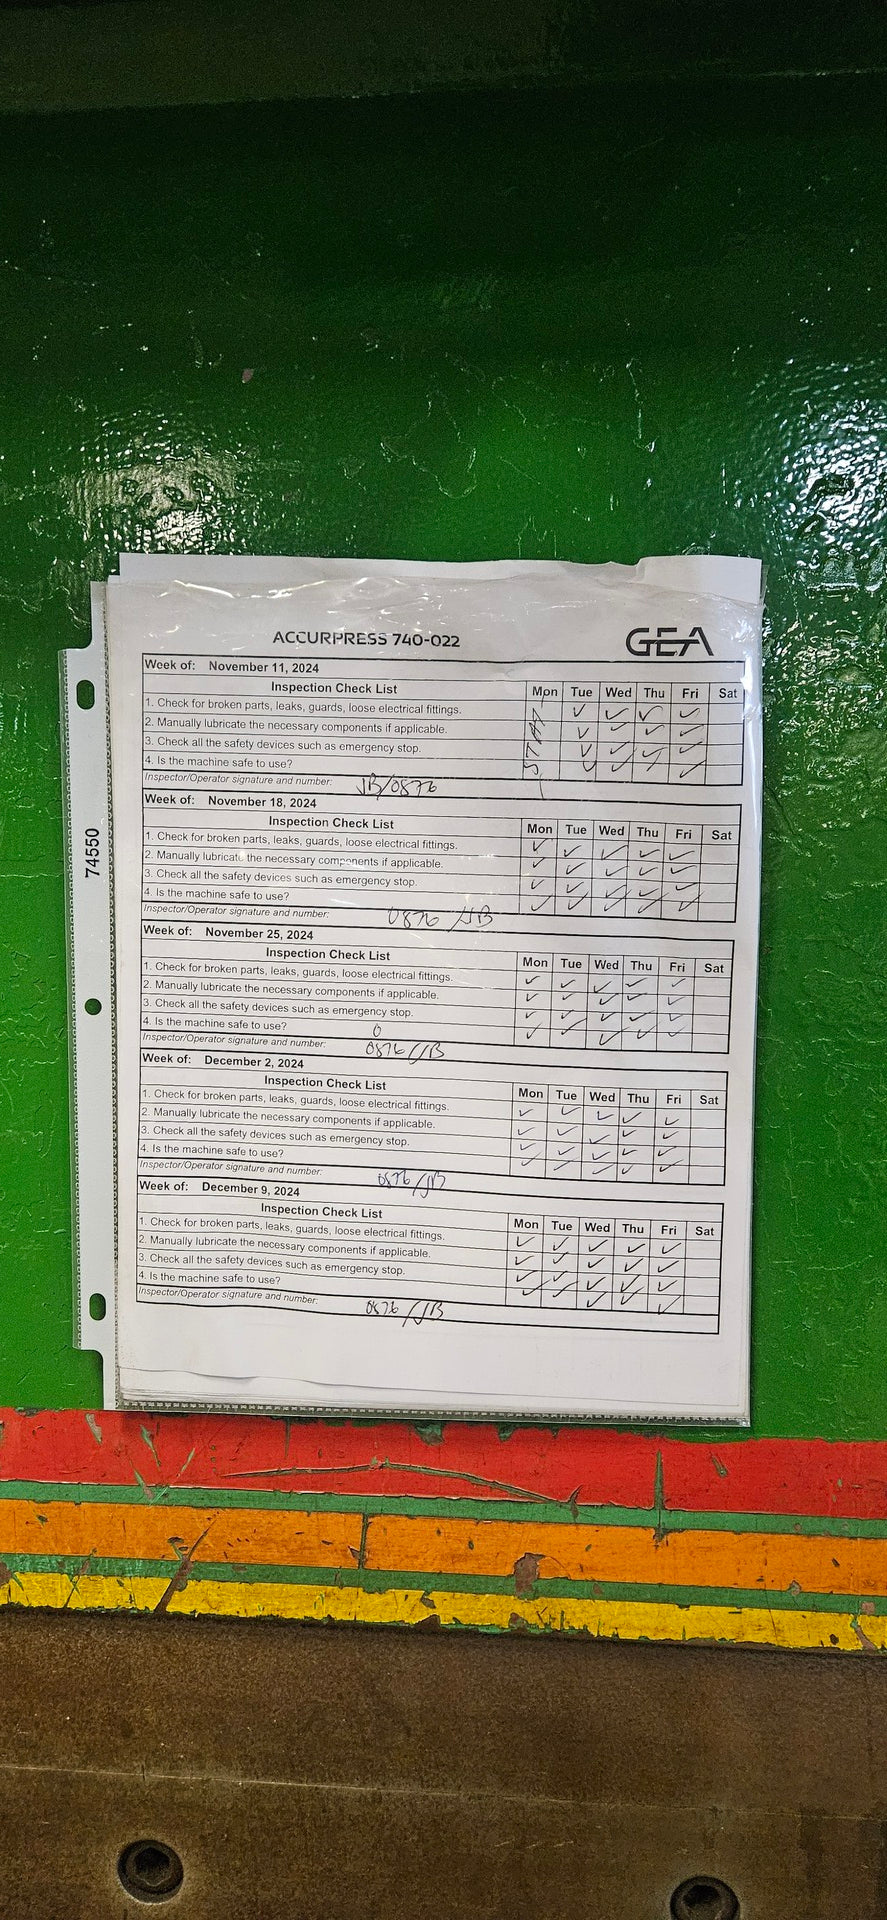 ACCURPRESS 740-022
GEA
Week of: November 11, 2024
Inspection Check List Mon Tue Wed Thu Fri Sat
1. Check for broken parts, leaks, guards, loose electrical fittings. ✓ ✓ ✓ ✓
2. Manually lubricate the necessary components if applicable. ✓ ✓ ✓ ✓
3. Check all the safety devices such as emergency stop. ✓ ✓ ✓ ✓
4. Is the machine safe to use? ✓ ✓ ✓ ✓
STAT
Inspector/Operator signature and number: JB/0876
Week of: November 18, 2024
Inspection Check List Mon Tue Wed Thu Fri Sat
1. Check for broken parts, leaks, guards, loose electrical fittings. ✓ ✓ ✓ ✓ ✓
2. Manually lubricate the necessary components if applicable. ✓ ✓ ✓ ✓ ✓
3. Check all the safety devices such as emergency stop. ✓ ✓ ✓ ✓ ✓
4. Is the machine safe to use? ✓ ✓ ✓ ✓ ✓
Inspector/Operator signature and number: 0876 /JB
74550
Week of: November 25, 2024
Inspection Check List Mon Tue Wed Thu Fri Sat
1. Check for broken parts, leaks, guards, loose electrical fittings. ✓ ✓ ✓ ✓ ✓
2. Manually lubricate the necessary components if applicable. ✓ ✓ ✓ ✓ ✓
3. Check all the safety devices such as emergency stop. ✓ ✓ ✓ ✓ ✓
4. Is the machine safe to use? ✓ ✓ ✓ ✓ ✓
Inspector/Operator signature and number: 0876/JB
Week of: December 2, 2024
Inspection Check List Mon Tue Wed Thu Fri Sat
1. Check for broken parts, leaks, guards, loose electrical fittings. ✓ ✓ ✓ ✓ ✓
2. Manually lubricate the necessary components if applicable. ✓ ✓ ✓ ✓ ✓
3. Check all the safety devices such as emergency stop. ✓ ✓ ✓ ✓ ✓
4. Is the machine safe to use? ✓ ✓ ✓ ✓ ✓
Inspector/Operator signature and number: 0876/JB
Week of: December 9, 2024
Inspection Check List Mon Tue Wed Thu Fri Sat
1. Check for broken parts, leaks, guards, loose electrical fittings. ✓ ✓ ✓ ✓ ✓
2. Manually lubricate the necessary components if applicable. ✓ ✓ ✓ ✓ ✓
3. Check all the safety devices such as emergency stop. ✓ ✓ ✓ ✓ ✓
4. Is the machine safe to use? ✓ ✓ ✓ ✓ ✓
Inspector/Operator signature and number: 0876/JB